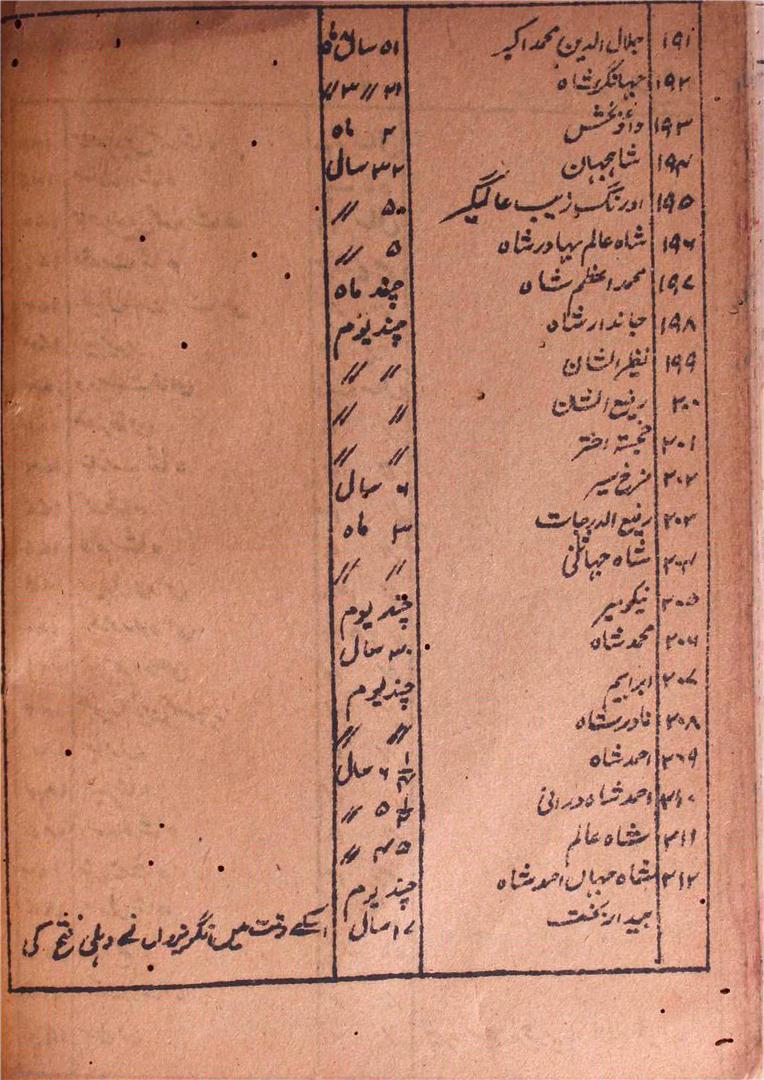 ۱۹۱ جلال الدین محمد اکبر ۵۱ سال ۸ ماہ
۱۹۲ جہانگیر شاہ ۲۱ // ۳ //
۱۹۳ داؤد بخش ۲ ماہ
۱۹۴ شاہجہان ۳۲ سال
۱۹۵ اورنگ زیب عالمگیر ۵۰ //
۱۹۶ شاہ عالم بہادر شاہ ۵ //
۱۹۷ محمد اعظم شاہ چند ماہ
۱۹۸ جاندار شاہ چند یوم
۱۹۹ نظیر الشان // //
۲۰۰ رفیع الشان // //
۲۰۱ خجستہ اختر // //
۲۰۲ فرخ سیر ۶ سال
۲۰۳ رفیع الدرجات ۳ ماہ
۲۰۴ شاہ جہاں ثانی // //
۲۰۵ نیکوسیر چند یوم
۲۰۶ محمد شاہ ۳۰ سال
۲۰۷ ابراہیم چند یوم
۲۰۸ نادر شاہ // //
۲۰۹ احمد شاہ ۶ سال
۲۱۰ احمد شاہ درانی ۵ //
۲۱۱ شاہ عالم ۴۵ //
۲۱۲ شاہ جہاں احمد شاہ چند یوم
بیدار بخت سال اسکے وقت میں انگریزوں نے دہلی فتح کی